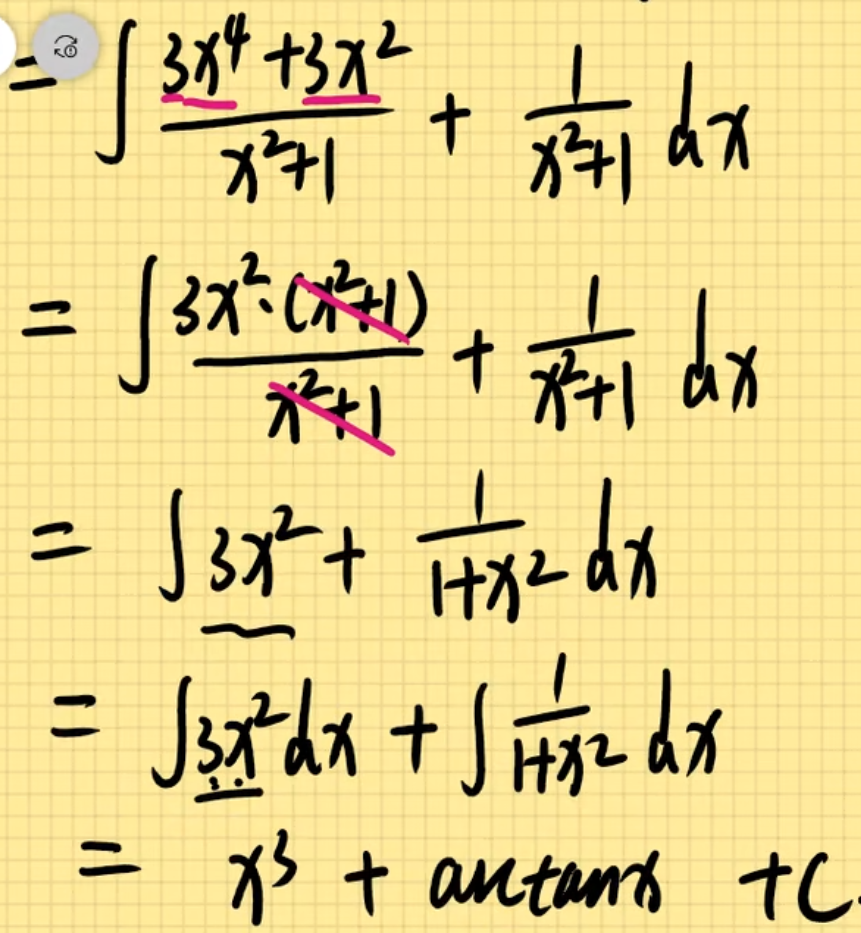 = ∫ (3x⁴ + 3x²)/(x²+1) + 1/(x²+1) dx
= ∫ 3x²·(x²+1)/(x²+1) + 1/(x²+1) dx
= ∫ 3x² + 1/(1+x²) dx
= ∫ 3x² dx + ∫ 1/(1+x²) dx
= x³ + arctanx + C